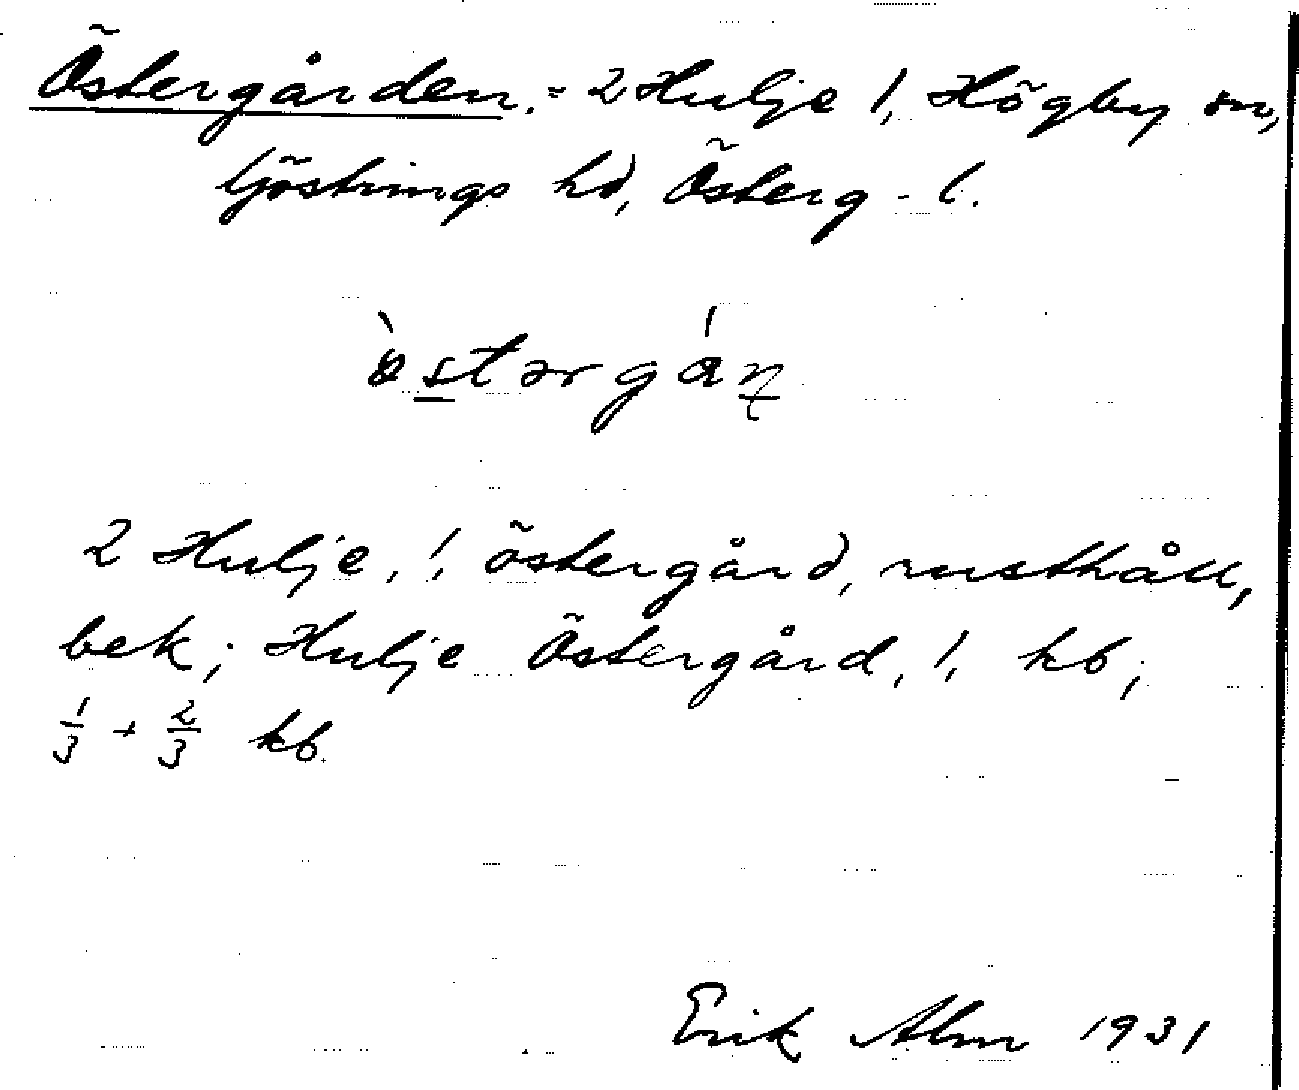 Östergården. = 2 Hulje 1, Högby sn,
Göstrings hd, Österg - l.
2 Hulje, 1, östergård, rusthåll,
bek; Hulje Östergård, 1, kb;
1/3 + 2/3 kb.
Erik Alm 1931